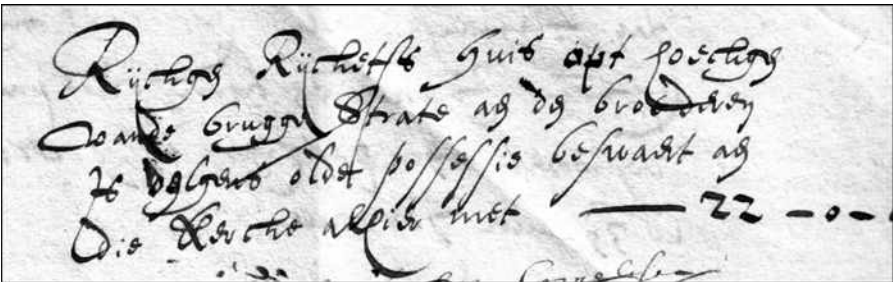 Rijchgen Rijcherts huis opt hoechgen
vande brugge Strate aen den broederen
Is volgens olde possessie beswaert aen
die Kercke alhier met — 22 - 0 -